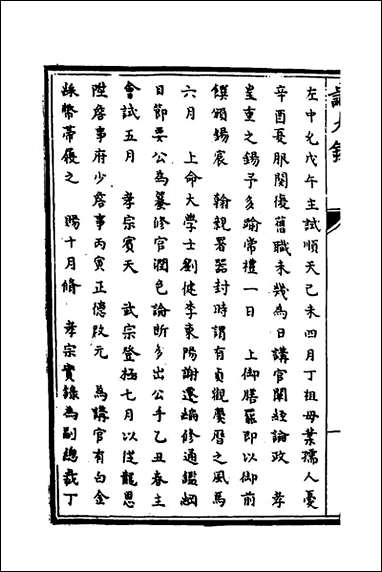 左中允戊午主試順天己未四月丁祖母葉孺人憂
辛酉憂服闋復舊職未幾為日講官闡經論政 孝
皇重之錫予多踰常禮一日 上御膳罷即以御前
饌頒錫宸 翰親署器封時謂有貞觀慶曆之風焉
六月 上命大學士劉健李東陽謝遷編修通鑑綱
目節要公為纂修官潤色論斷多出公手乙丑春主
會試五月 孝宗賓天 武宗登極七月以從龍恩
陞詹事府少詹事丙寅正德改元 為講官有白金
綵幣帶履之 賜十月脩 孝宗實錄為副總裁丁